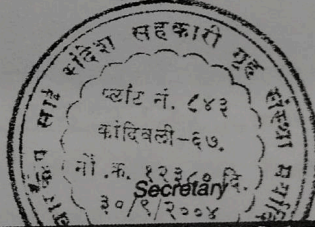 चारकोप साई संदेश सहकारी गृह संस्था मर्यादित
प्लॉट नं. ८४३
कांदिवली-६७.
नों .क्र. १२३८० दि.
Secretary
३०/९/२००४